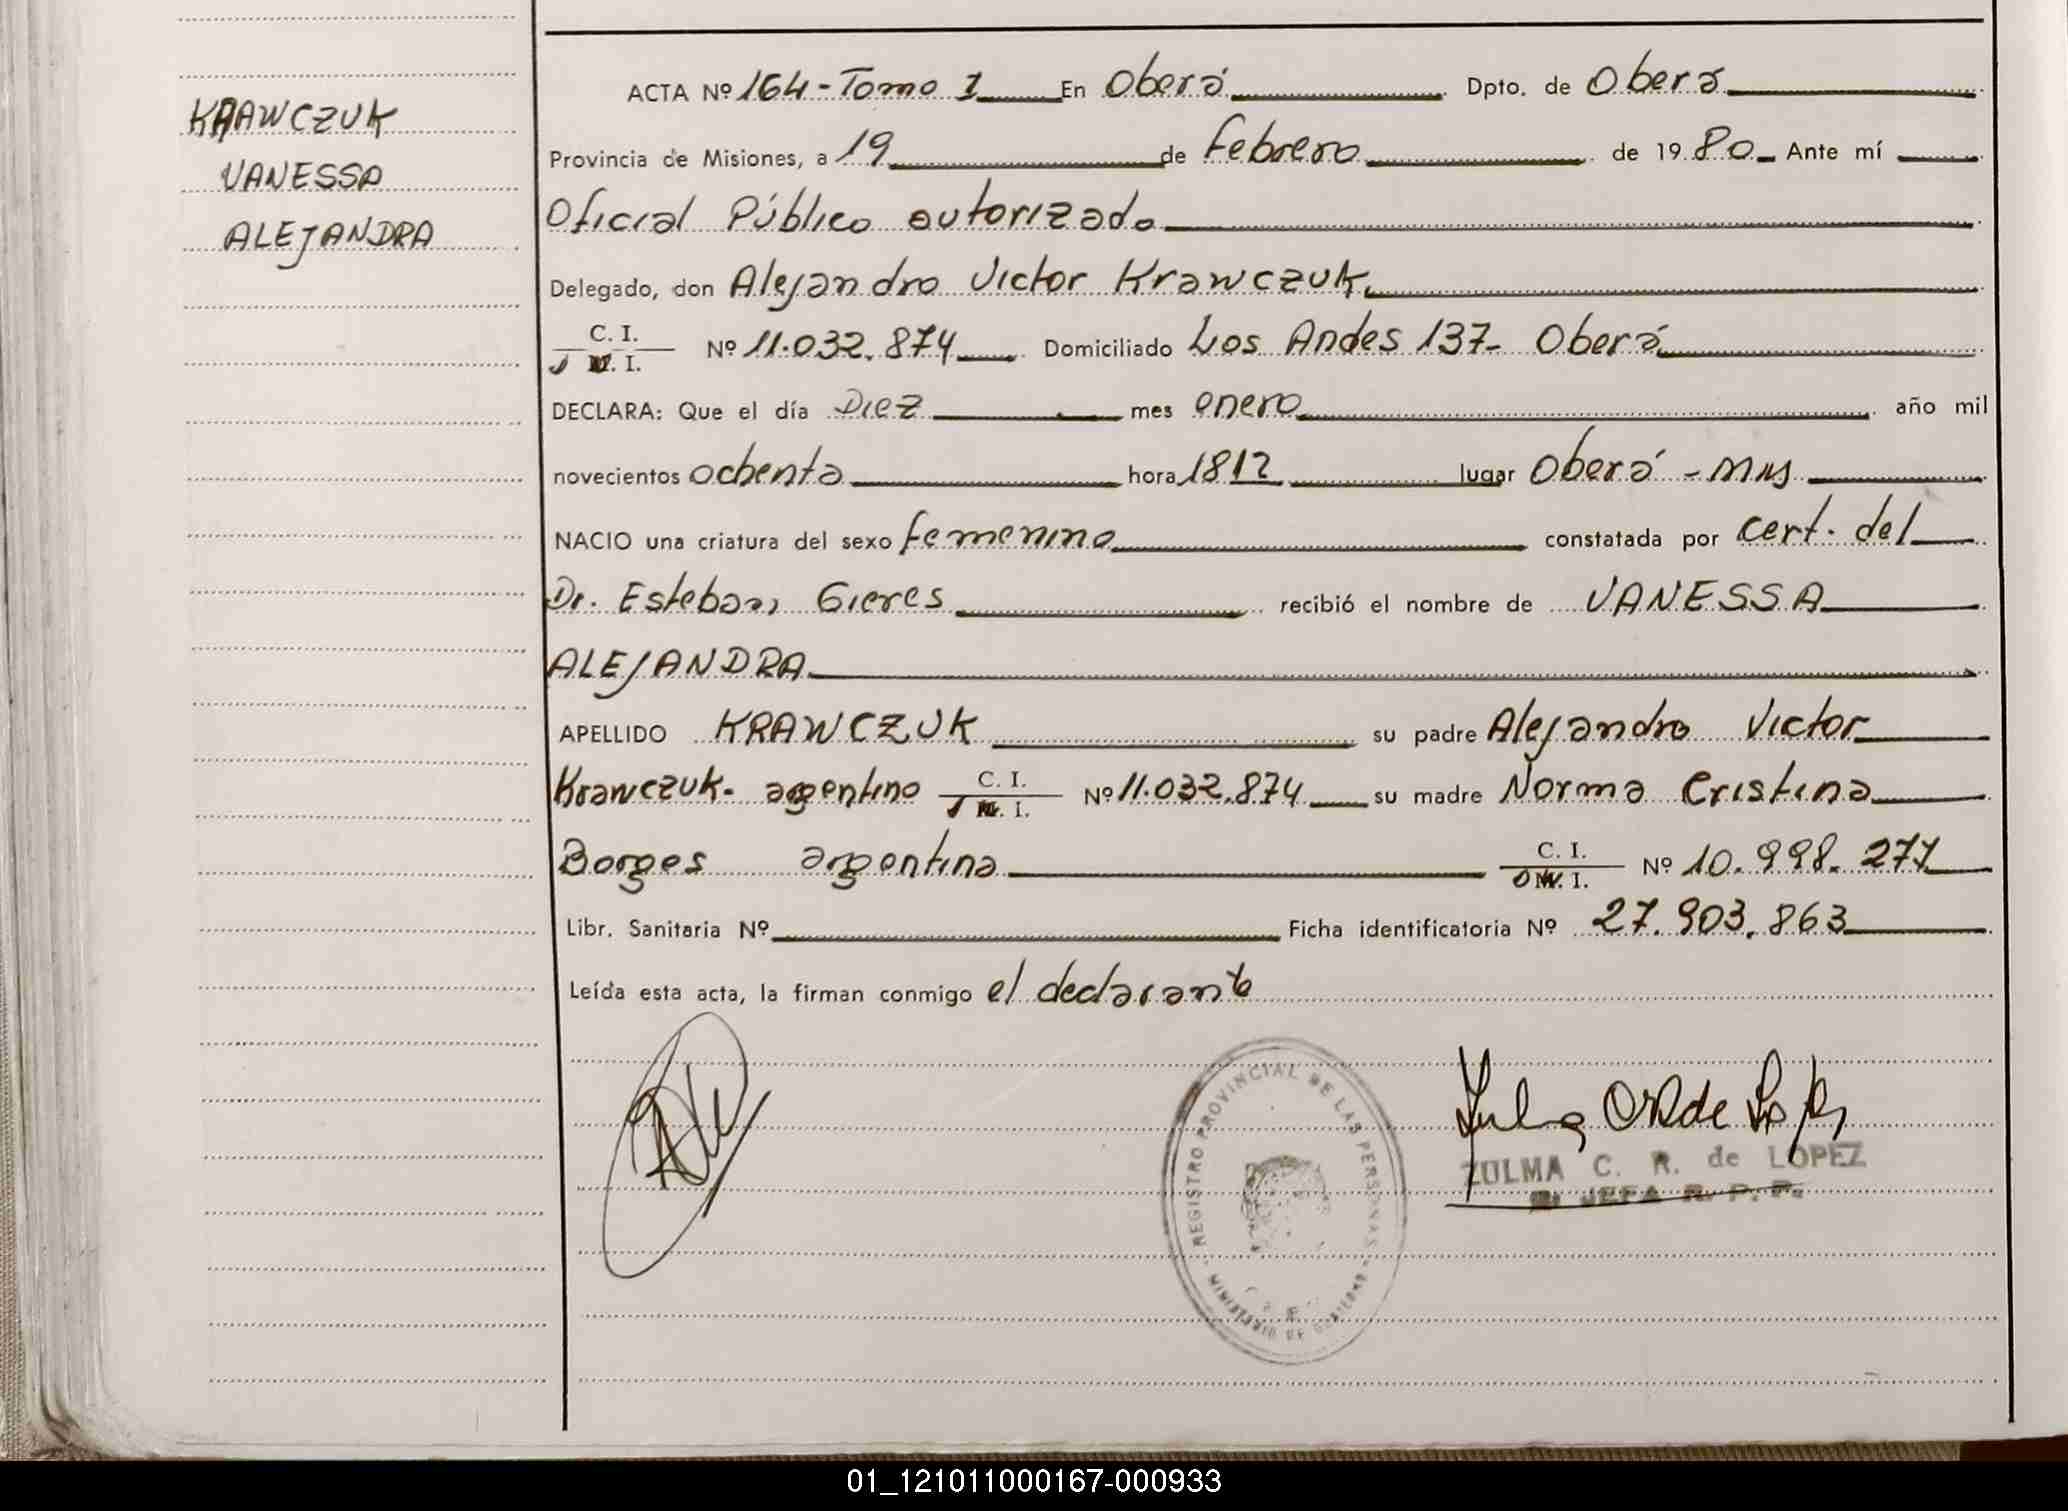 KRAWCZUK
VANESSA
ALEJANDRA
ACTA Nº 164-Tomo 1 En Oberá Dpto. de Oberá
Provincia de Misiones, a 19 de Febrero de 1980 Ante mí
Oficial Público autorizado
Delegado, don Alejandro Victor Krawczuk
C. I.
Nº 11.032.874 Domiciliado Los Andes 137- Oberá
DECLARA: Que el día Diez mes enero año mil
novecientos ochenta hora 1812 lugar Oberá - Mns
NACIO una criatura del sexo femenino constatada por cert. del
Dr. Esteban Gieres recibió el nombre de VANESSA
ALEJANDRA
APELLIDO KRAWCZUK su padre Alejandro Victor
Krawczuk- argentino C. I. Nº 11.032.874 su madre Norma Cristina
Borges argentina C. I. Nº 10.998.277
Libr. Sanitaria Nº Ficha identificatoria Nº 27.903.863
Leída esta acta, la firman conmigo el declarante
REGISTRO PROVINCIAL DE LAS PERSONAS
MINISTERIO DE GOBIERNO
ZULMA C. R. de LOPEZ
JEFA R. P. P.
01_121011000167-000933